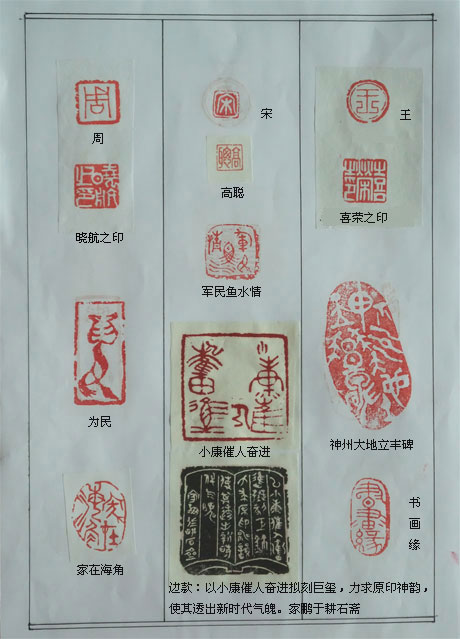 周
晓航之印
为民
家在海角
宋
高聪
军民鱼水情
小康催人奋进
边款：以小康催人奋进拟刻巨玺，力求原印神韵，
使其透出新时代气魄。家鹏于耕石斋
王
喜荣之印
神州大地立丰碑
书画缘